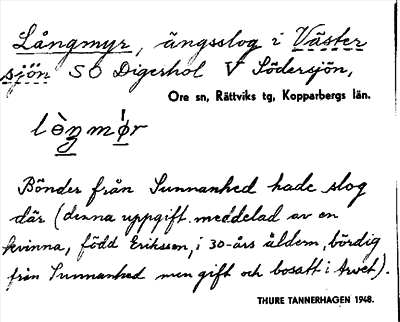 Långmyr, ängsslog i Väster
sjön SO Digerhol V Södersjön,
Ore sn, Rättviks tg, Kopparbergs län.
lòŋmør
Bönder från Sunnanhed hade slog
där (denna uppgift meddelad av en
kvinna, född Eriksson, i 30-års åldern, bördig
från Sunnanhed men gift och bosatt i Arvet).
THURE TANNERHAGEN 1948.